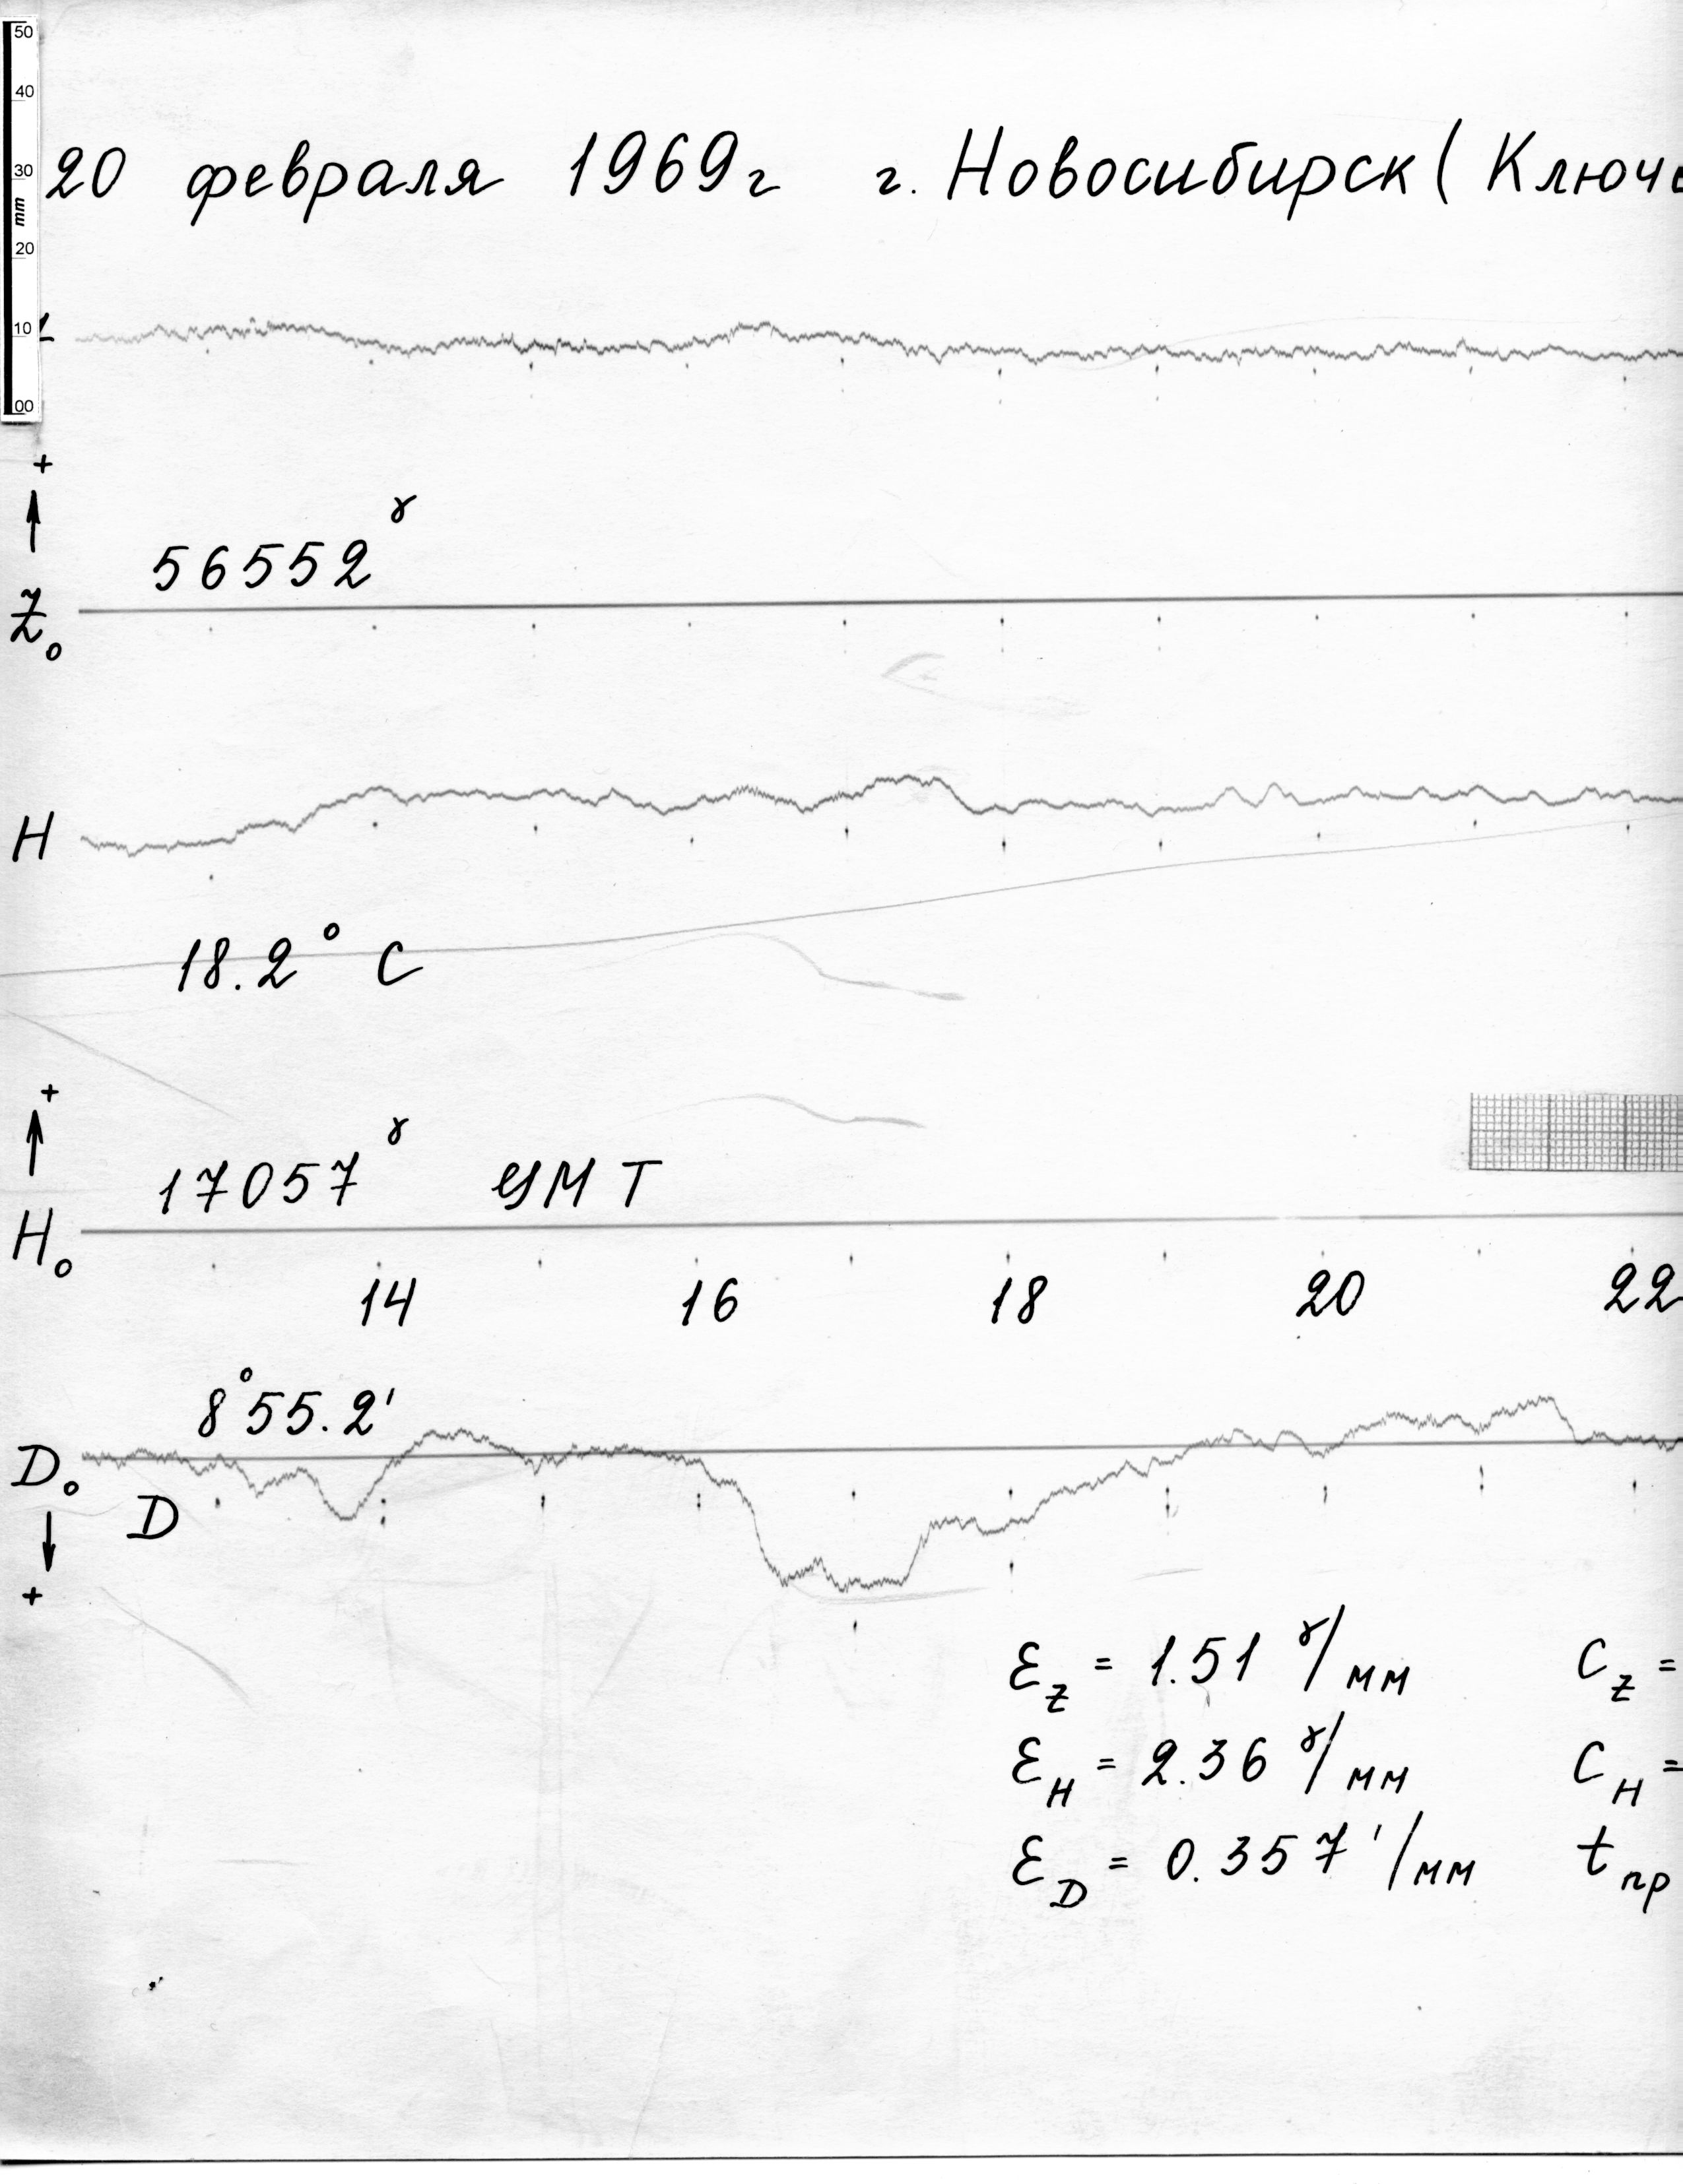 50
40
30
mm
20
10
00
20 февраля 1969г г. Новосибирск (Ключе
Z
+
56552γ
Z₀
H
18.2° C
+
17057γ УМТ
H₀
14 16 18 20 22
8°55.2'
D₀
D
+
Ɛ_Z = 1.51 γ/мм C_Z =
Ɛ_H = 2.36 γ/мм C_H =
Ɛ_D = 0.357 '/мм t_пр